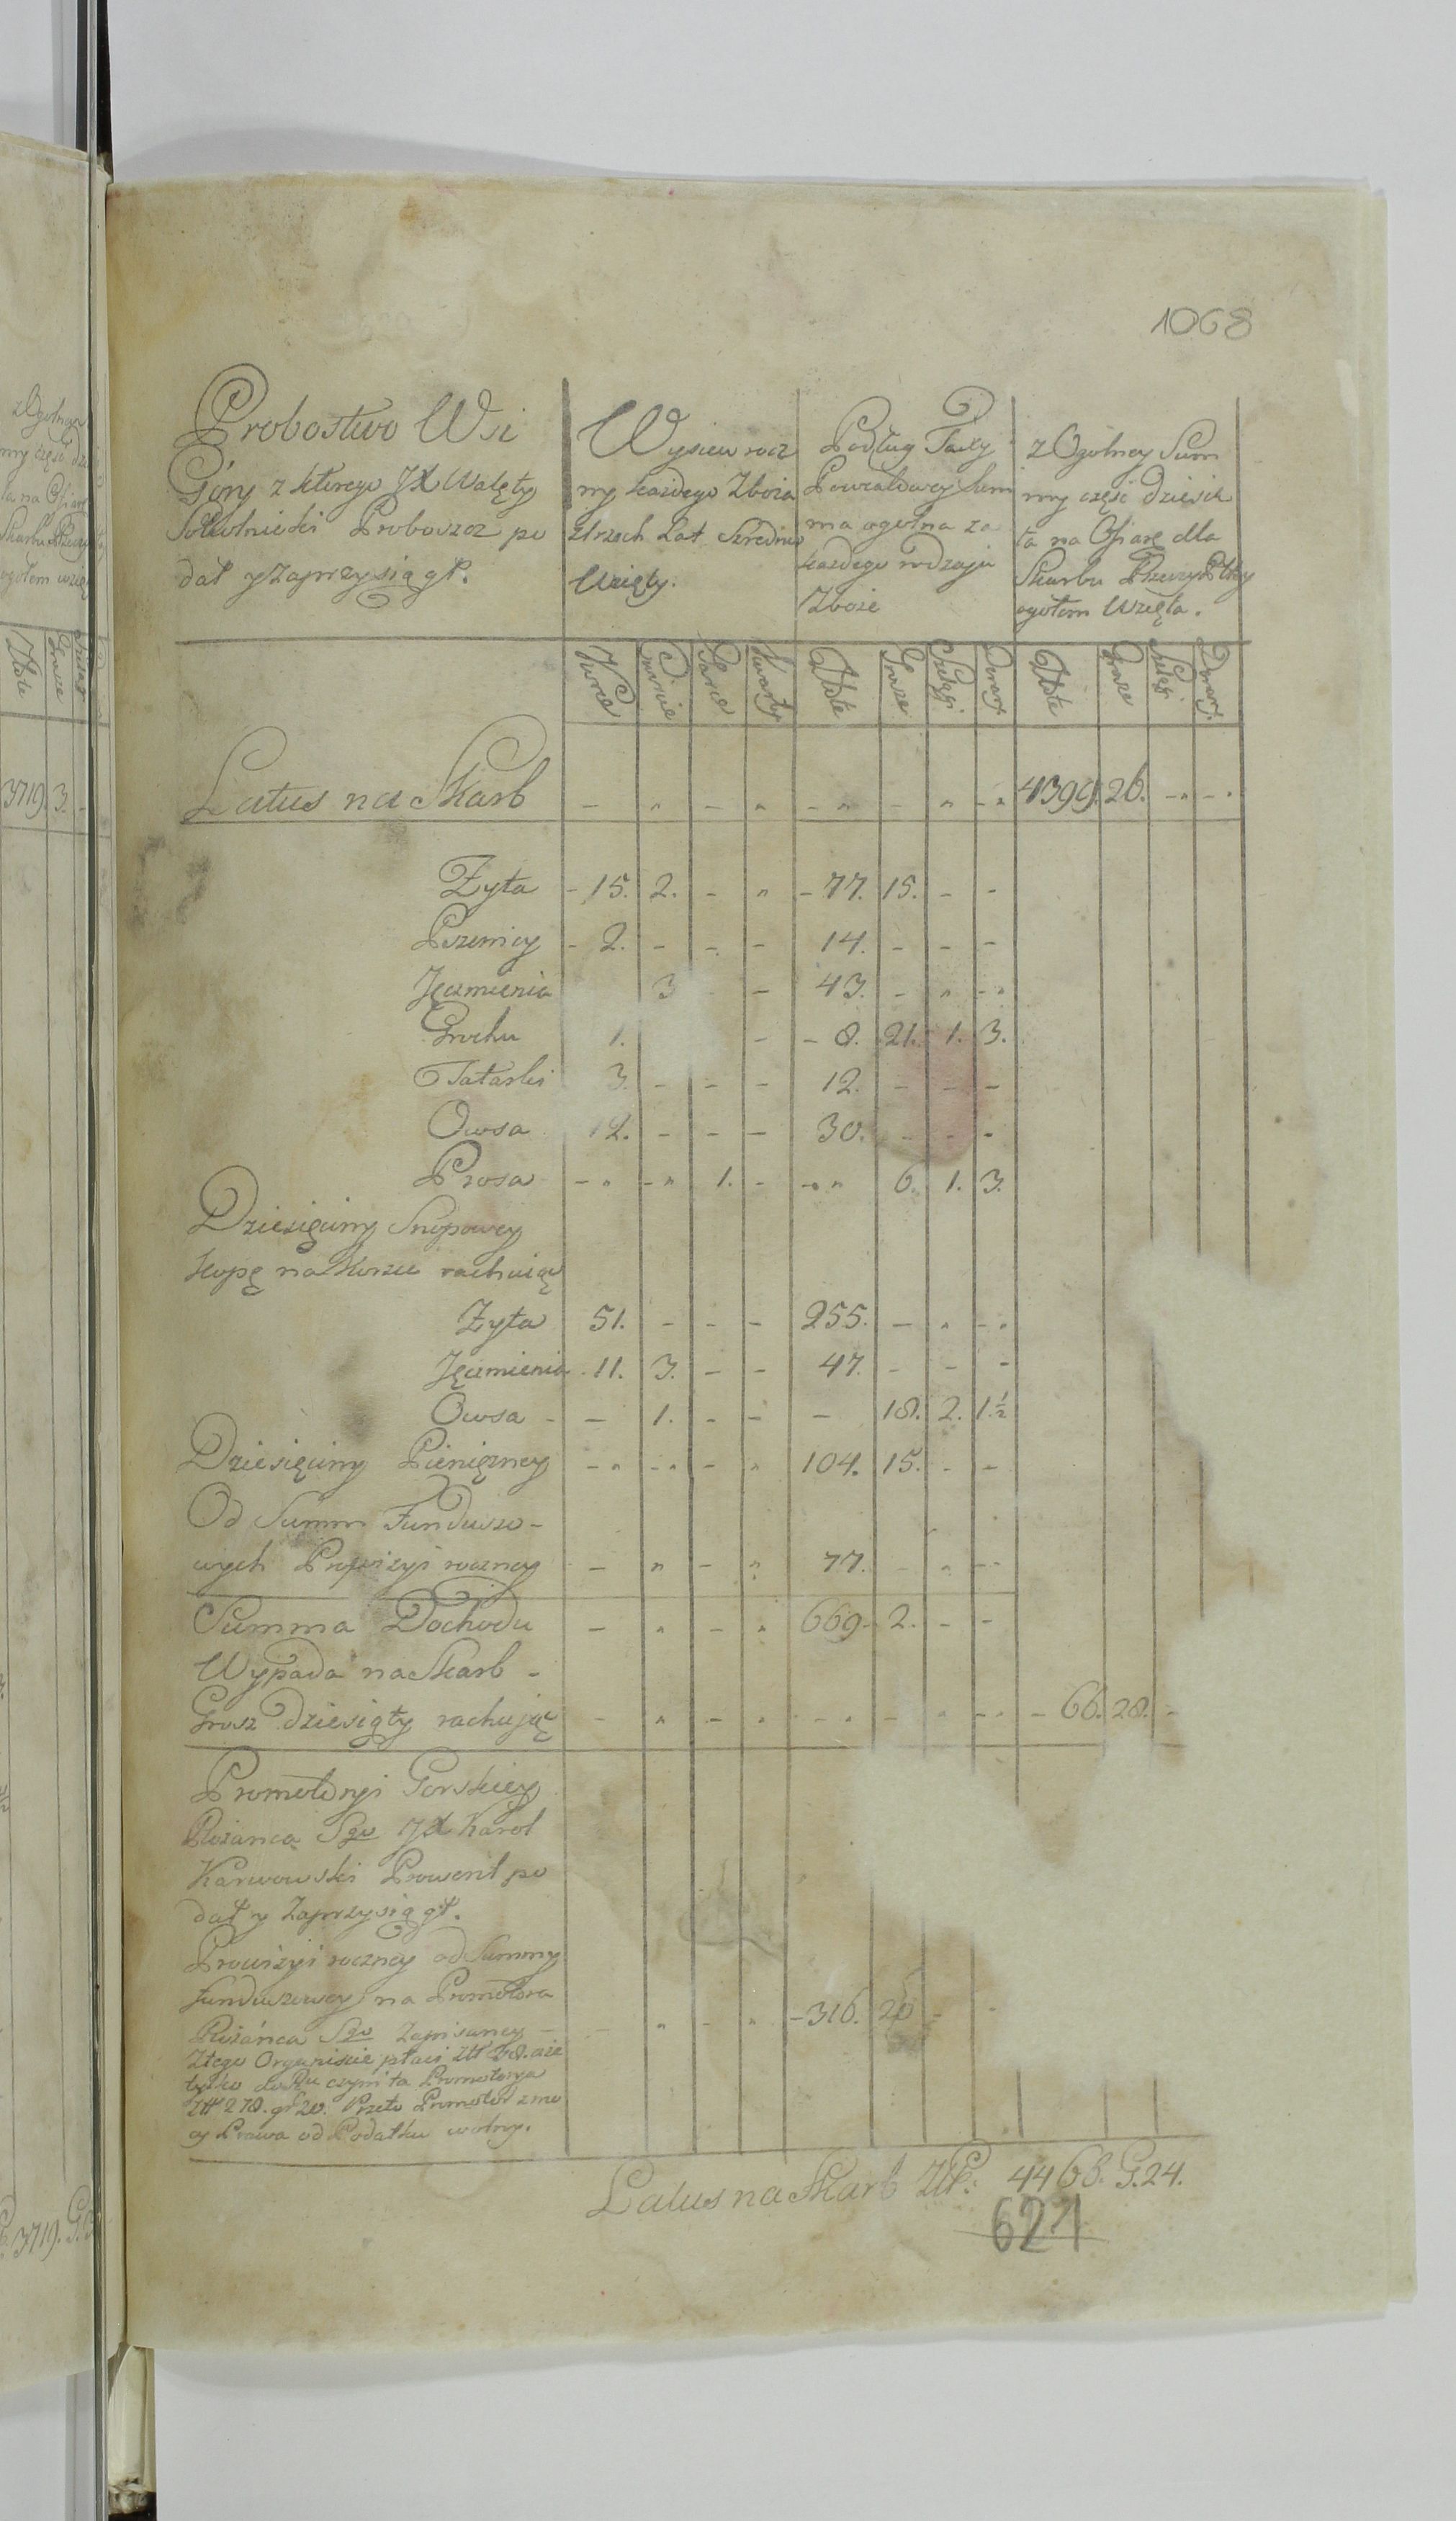 1068
Probostwo Wsi
Góry z ktorego JX Walęty
Proboszcz po
dał y zaprzysiągł.
Wysiew rocz
ny każdego Zboża
z trzech Lat Srednio
Wzięty.
Podług Taxy
Powiatowey Sum
ma ogolna za
każdego rodzaju
Zboże
z Ogolney Sum
my część dziesią
ta na Ofiarę dla
Skarbu Rzeczyplty
ogołem Wzięta.
Korce Cwierci Garce Kwarty Złote Grosze Szelągi Denary Złote Grosze Szelągi Denary
Latus na Skarb - " - " - " - " - " 4399. 26. - " - "
Zyta - 15. 2. - " - 77. 15. - -
Pszenicy - 2. - - - 14. - - -
Jęczmienia 3 - 43. - " - "
Grochu 1. - - 8. 21. 1. 3.
Tatarki 3. - - - 12. - - -
Owsa 12. - - - 30. - - -
Prosa - " - " 1. - - " 6. 1. 3.
Dziesięciny Snopowey
kopę na Korzec rachuiąc
Zyta 51. - - - 255. - " - "
Jęczmienia 11. 3. - - 47. - - -
Owsa - - 1. - - - 18. 2. 1.½
Dziesięciny Pieniężney - " - " - " 104. 15. - -
Od Summ Funduszo-
wych Prowizyi roczney - " - " 77. - " - "
Summa Dochodu - " - " 669 - 2. - -
Wypada na Skarb -
Grosz dziesiąty rachując - " - " - " - " - " - 66. 28. -
Promotoryi Gorskiey
Rożanca Sgo JX Karol
Karwowski Prowent po
dał y Zaprzysiągł.
Prowizyi roczney od Summy
funduszowey na Promotora
Rożańca Sgo Zapisaney - - " - " - 316. 20 - -
Ztego Organiście płaci Złł 38. aże
tylko czyni ta Promotorya
Złł 278. gr 20. Przeto Promotor z mo
cy Prawa od Podatku wolny.
Latus na Skarb Złł: 4466. G. 24.
621